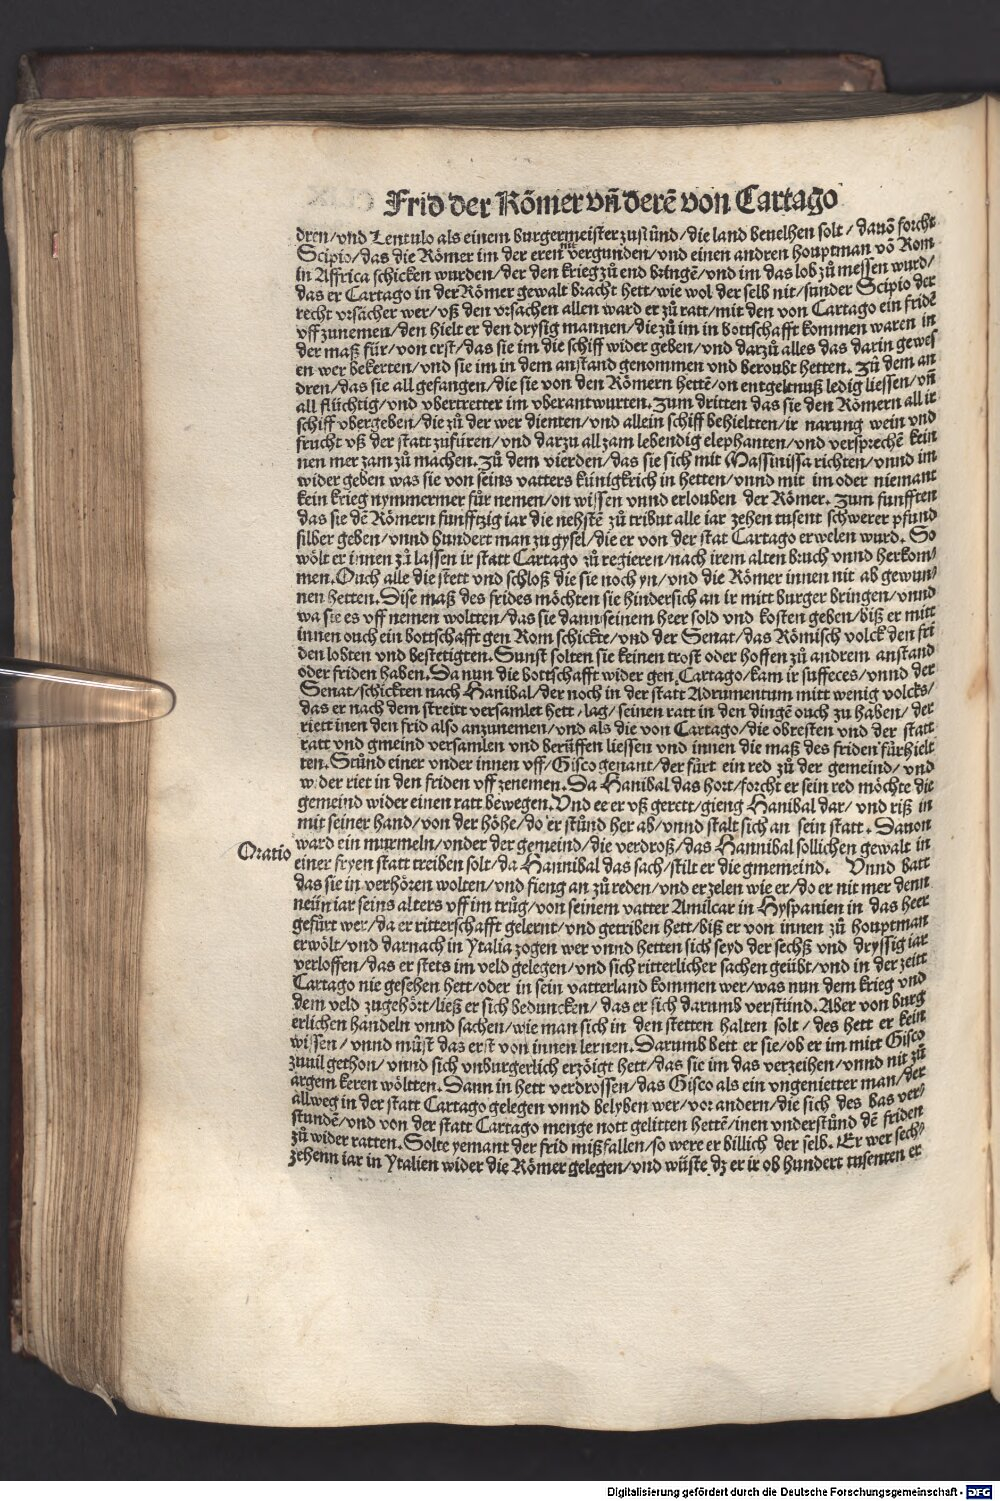 Frid der Römer vñ derẽ von Cartago
dren/vnd Lentulo als einem burgermeister zustůnd/die land beuelhen solt/dauõ forcht
Scipio/das die Römer im der eren nit vergunden/vnd einen andren houptman võ Rom
in Affrica schicken wurden/der den krieg zů end bringẽ/vnd im das lob zů messen wurd/
das er Cartago in der Römer gewalt bracht hett/wie wol der selb nit/sunder Scipio der
recht vrsächer wer/vß den vrsachen allen ward er zů ratt/mit den von Cartago ein fridẽ
vff zunemen/den hielt er den drysig mannen/die zů im in bottschafft kommen waren in
der maß für/von erst/das sie im die schiff wider geben/vnd darzů alles das darin gewes
en wer bekerten/vnd sie im in dem anstand genommen vnd beroubt hetten. Zů dem an
dren/das sie all gefangen/die sie von den Römern hettẽ/on entgeltnuß ledig liessen/vñ
all flüchtig/vnd vbertretter im vberantwurten. Zum dritten das sie den Römern all ir
schiff vbergeben/die zů der wer dienten/vnd allein schiff behieltten/ir narung wein vnd
frucht vß der statt zufüren/vnd darzu all zam lebendig elephanten/vnd versprechẽ kein
nen mer zam zů machen. Zů dem vierden/das sie sich mit Massinissa richten/vnnd im
wider geben was sie von seins vatters künigkrich in hetten/vnnd mit im oder niemant
kein krieg nymmermer für nemen/on wissen vnnd erlouben der Römer. Zum funfften
das sie dẽ Römern funfftzig iar die nehstẽ zů tribut alle iar zehen tusent schwerer pfund
silber geben/vnnd hundert man zu gysel/die er von der stat Cartago erwelen wurd. So
wölt er innen zů lassen ir statt Cartago zů regieren/nach irem alten bruch vnnd herkom/
men. Ouch alle die stett vnd schloß die sie noch yn/vnd die Römer innen nit ab gewun/
nen hetten. Dise maß des frides möchten sie hindersich an ir mitt burger bringen/vnnd
wa sie es vff nemen woltten/das sie dann seinem heer sold vnd kosten geben/biß er mitt
innen ouch ein bottschafft gen Rom schickte/vnd der Senat/das Römisch volck den fri
den lobten vnd bestetigten. Sunst solten sie keinen trost oder hoffen zů andrem anstand
oder friden haben. Da nun die bottschafft wider gen Cartago/kam ir suffeces/vnnd der
Senat/schickten nach Hanibal/der noch in der statt Adrumentum mitt wenig volcks/
das er nach dem streitt versamlet hett/lag/seinen ratt in den dingẽ ouch zu haben/der
riett inen den frid also anzunemen/vnd als die von Cartago/die obresten vnd der statt
ratt vnd gmeind versamlen vnd berůffen liessen vnd innen die maß des friden fürhielt
ten. Stůnd einer vnder innen vff/Gisco genant/der fürt ein red zů der gemeind/vnd
wider riet in den friden vff zenemen. Da Hanibal das hort/forcht er sein red möchte die
gemeind wider einen ratt bewegen. Vnd ee er vß gerett/gieng Hanibal dar/vnd riß in
mit seiner hand/von der höhe/do er stůnd her ab/vnnd stalt sich an sein statt. Dauon
ward ein murmeln/vnder der gemeind/die verdroß/das Hannibal sollichen gewalt in
Oratio
einer fryen statt treiben solt/da Hannibal das sach/stilt er die gmemeind. Vnnd batt
das sie in verhören wolten/vnd fieng an zů reden/vnd erzelen wie er/do er nit mer denn
neün iar seins alters vff im trůg/von seinem vatter Amilcar in Hyspanien in das heer
gefürt wer/da er ritterschafft gelernt/vnd getriben hett/biß er von innen zů houptman
erwölt/vnd darnach in Ytalia zogen wer vnnd hetten sich seyd der sechß vnd dryssig iar
verloffen/das er stets im veld gelegen/vnd sich ritterlicher sachen geübt/vnd in der zeitt
Cartago nie gesehen hett/oder in sein vatterland kommen wer/was nun dem krieg vnd
dem veld zugehört/ließ er sich beduncken/das er sich darumb verstünd. Aber von burg
erlichen händeln vnnd sachen/wie man sich in den stetten halten solt/des hett er kein
wissen/vnnd můst das erst von innen lernen. Darumb bett er sie/ob er im mitt Gisco
zuuil gethon/vnnd sich vnburgerlich erzöigt hett/das sie im das verzeihen/vnnd nit zů
argem keren wöltten. Dann in hett verdrossen/das Gisco als ein vngenietter man/der
allweg in der statt Cartago gelegen vnnd belyben wer/vor andern/die sich des bas ver/
stundẽ/vnd von der statt Cartago menge nott gelitten hettẽ/inen vnderstůnd dẽ friden
zů wider ratten. Solte yemant der frid mißfallen/so were er billich der selb. Er wer sech/
zehenn iar in Ytalien wider die Römer gelegen/vnd wüste dz er ir ob hundert tusenten er
Digitalisierung gefördert durch die Deutsche Forschungsgemeinschaft - DFG